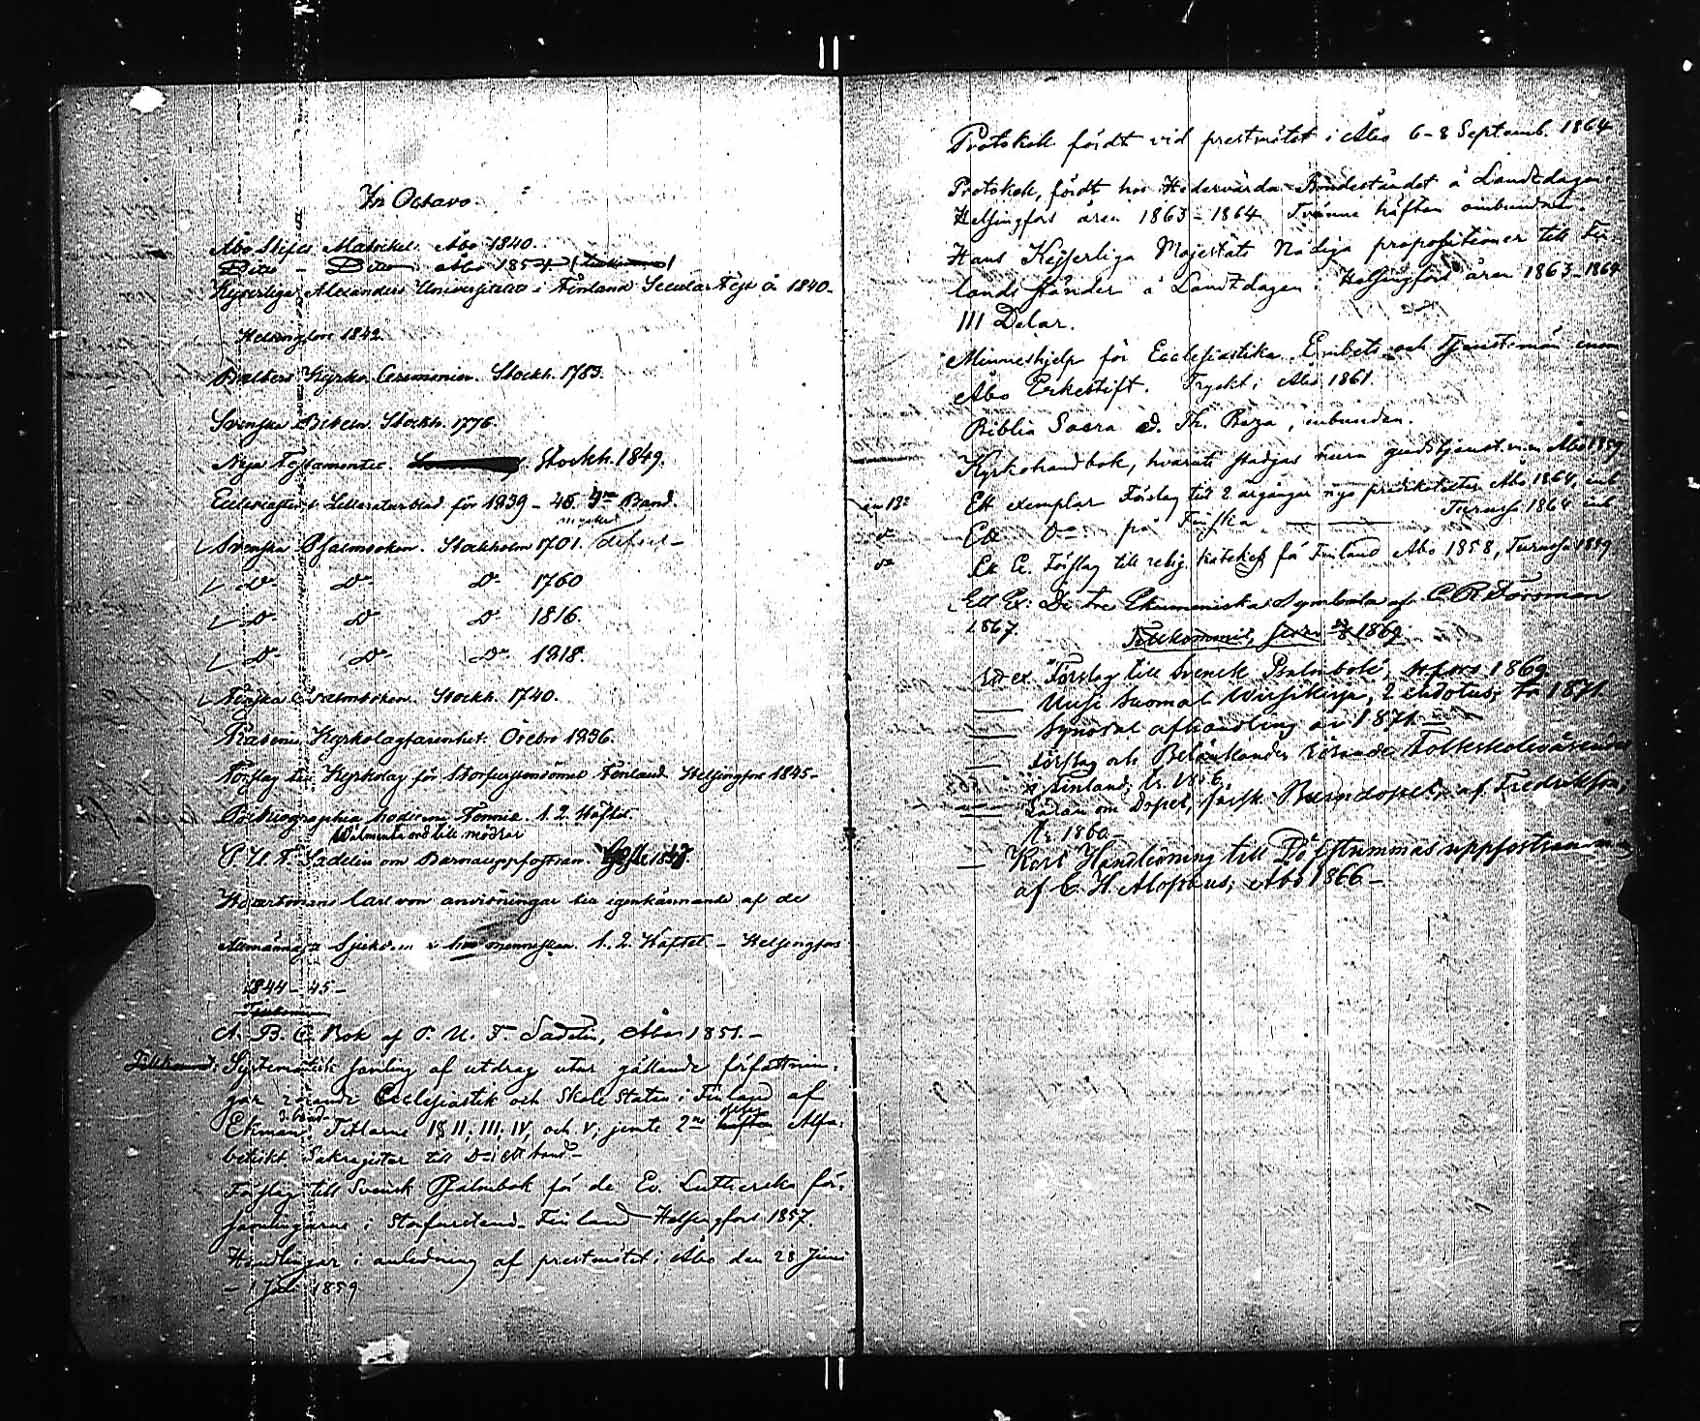 In Octavo
Åbo Stifts Matrickel. Åbo 1840.
Ditto - Ditto Åbo 1854.
Kejserliga Alexanders Universitetets i Finland Secular Fest år 1840.
Helsingfors 1842.
Bælters Kyrko Ceremonier. Stockh. 1783.
Svenska Bibeln. Stockh. 1776.
Nya Testamentet. Stockh. 1849.
Ecclesiastikt Litteraturblad för 1839-
Svenska Psalmboken. Stockholm 1701. mycket defect-
Do Do Do 1760
Do Do Do 1816.
Do Do Do 1818.
Finska Psalmboken. Stockh. 1740.
Rabenii Kyrkolagfarenhet. Örebro 1836.
Förslag till Kyrkolag för Storfurstendömet Finland. Helsingfors 1845-
hodierni Fennie. 1. 2. Häftet.
Välmenta ord till mödrar
P. U. F. Sadelin om Barnauppfostran.
Hartmans Carl von anvisningar till igenkännande af de
allmännaste Sjukdomar hos menniskan. 1. 2. Häftet - Helsingfors
1844-45-
A. B. C. Bok af P. U. F. Sadelin, Åbo 1851.-
Tillkommit: Systematisk samling af utdrag utur gällande författnin-
gar rörande Ecclesiastik och Skole Staten i Finland af
Ekman 3. band. Titlarne I, II, III, IV, och V, jemte 2ne Alfa-
betiskt Sakregister till Do i ett band-
Förslag till Svensk Psalmbok för de Ev. Lutherska för-
samlingarne i Storfurstend. Finland Helsingfors 1857.
Handlingar i anledning af prestmötet i Åbo den 28 Juni
- 1 Juli 1859
Protokoll fördt vid prestmötet i Åbo 6-8 Septemb. 1864
Protokoll, fördt hos Hedervärda Bondeståndet å Landtdagen i
Helsingfors åren 1863-1864 Tvänne häften oinbundne.
Hans Kejserliga Majestäts Nådiga propositioner till Fin-
lands ständer å Landtdagen i Helsingfors åren 1863-1864
III Delar.
Minneshjelp för Ecclesiastika Embets och Tjenstemän inom
Åbo Erkestift. Tryckt i Åbo 1861.
Biblia Sacra ed. Th. Beza, inbunden.
Kyrkohandbok, hvaruti stadgas huru gudstjenst. Åbo 1859
in 12o Ett exemplar Förslag till 2 årgångar nya predikotexter Åbo 1864, inb
do Ett Do på Finska Turussa 1864 inb
do Ett Ex. Förslag till relig. katekes för Finland Åbo 1858, Turussa 1859
Ett Ex: De tre Ekumeniska Symbola af C. R. Forsman
1867.
Tillkommit, 1869
Ett ex. Förslag till Svensk Psalmbok, H.fors 1869
Uusi Suomal. Wirsikirja, 2 ehdotus; 1871.
Synodal afhandling år 1871.
Förslag och Betänkanden rörande Folkskoleväsendet
i Finland;
Läran om Dopet, särsk. Barndopet af Fredrikson;
1860-
Kort Handledning till Döfstummas uppfostran
af C. H. Alopæus; Åbo 1866-